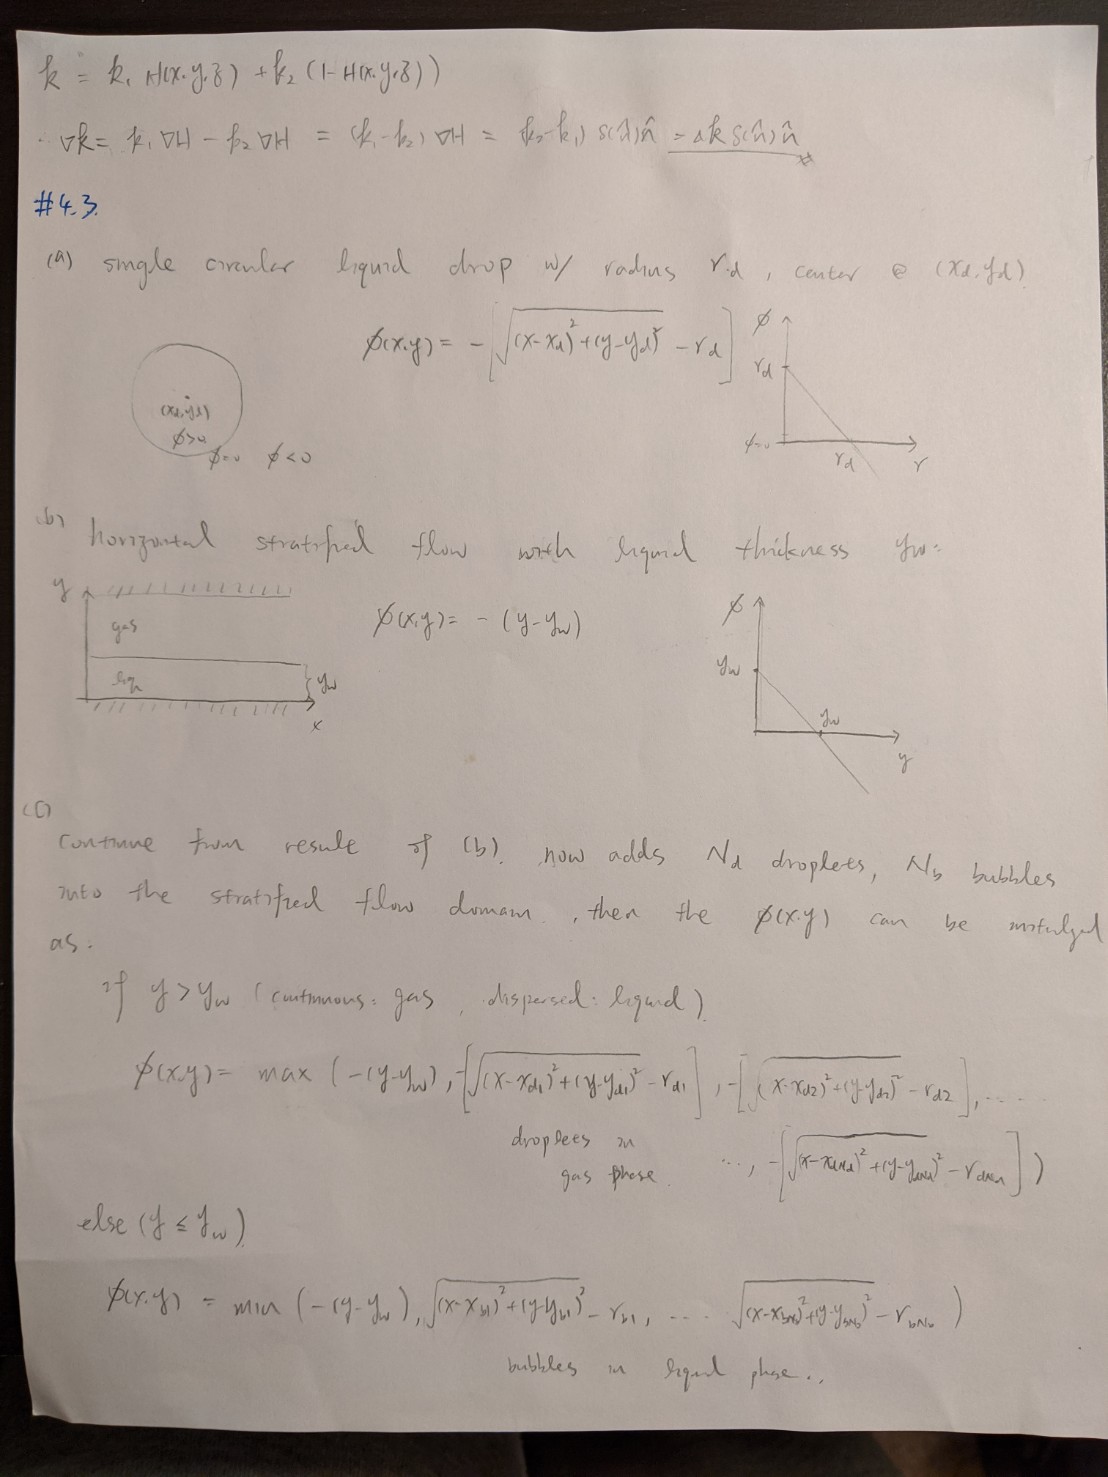 k = k₁ H(x,y,z) + k₂ (1-H(x,y,z))
∇k = k₁ ∇H - k₂ ∇H = (k₁-k₂) ∇H = (k₂-k₁) δ(n̂) n̂ = Δk δ(n̂) n̂
#4.3.
(a) single circular liquid drop w/ radius r_d, center @ (x_d, y_d)
φ(x,y) = -[√((x-x_d)²+(y-y_d)²) - r_d]
φ
r_d
φ=0
r_d
r
(x_d,y_d)
φ>0
φ=0 φ<0
(b) horizontal stratified flow with liquid thickness y_w:
y
gas
liq
y_w
x
φ(x,y) = -(y-y_w)
φ
y_w
y_w
y
(c)
continue from result of (b), now adds N_d droplets, N_b bubbles
into the stratified flow domain, then the φ(x,y) can be
as:
if y > y_w (continuous: gas, dispersed: liquid)
φ(x,y) = max (-(y-y_w), -[√((x-x_d1)²+(y-y_d1)²) - r_d1], -[√((x-x_d2)²+(y-y_d2)²) - r_d2], .....
droplets in
gas phase
..., -[√((x-x_dNd)²+(y-y_dNd)²) - r_dNd])
else (y ≤ y_w)
φ(x,y) = min (-(y-y_w), √((x-x_b1)²+(y-y_b1)²) - r_b1, .... √((x-x_bNb)²+(y-y_bNb)²) - r_bNb)
bubbles in liquid phase..